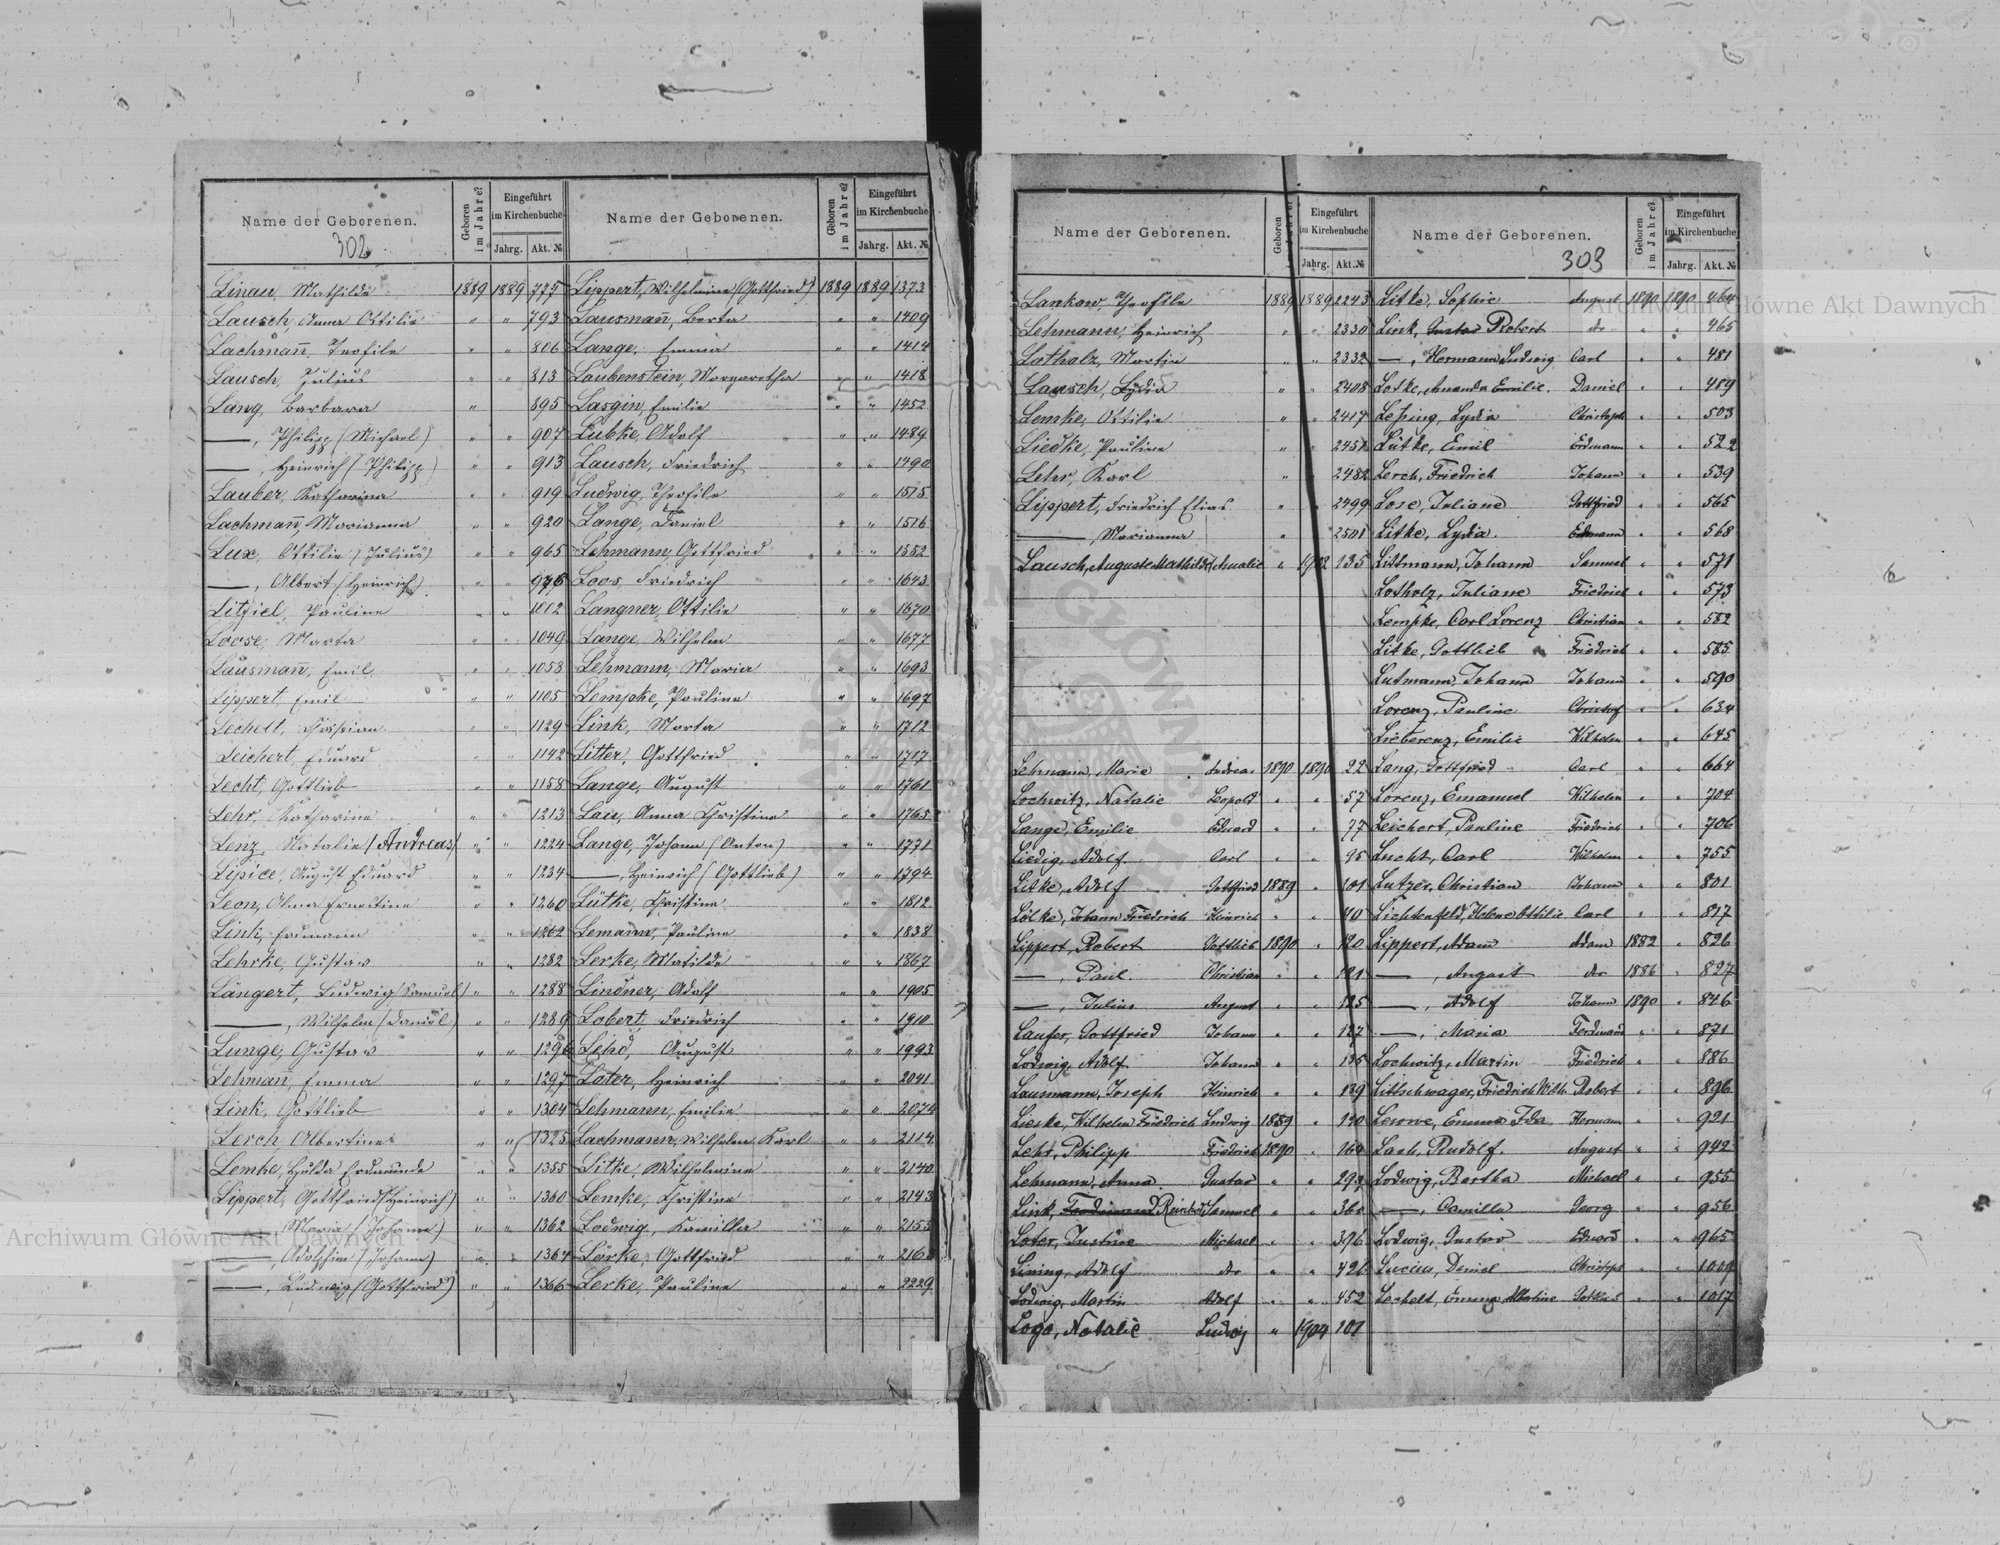 Name der Geborenen.
302
Geboren im Jahre?
Eingeführt im Kirchenbuche
Jahrg. Akt. №
Name der Geborenen.
Geboren im Jahre?
Eingeführt im Kirchenbuche
Jahrg. Akt. №
Linau, Mathilde 1889 1889 775
Lausch, Anna Ottilie " " 793
Lachmañ, Teofile " " 806
Lausch, Julius " " 813
Lang, Barbara " 895
—, Philipp (Michael) " " 907
—, Heinrich (Philipp) " " 913
Lauber, Katharina " " 919
Lachmañ, Marianna " " 920
Lux, Ottilie (Julius) " " 965
—, Albert (Heinrich) " " 976
Litziel, Pauline " " 1002
Loose, Marta " " 1049
Lausmañ, Emil " " 1058
Lippert, Emil " " 1105
Lechelt, " " 1129
Leichert, Eduard " " 1142
Lecht, Gottlieb " " 1158
Lehr, Katharina " " 1213
Lenz, Natalie (Andreas) " " 1224
Lipice, August Eduard " " 1234
Leon, Alma Ernestine " " 1260
Link, Erdmann " " 1262
Lehrke, Gustav " " 1282
Längert, Ludwig (Samuel) " " 1288
—, Wilhelm (Daniel) " " 1289
Lunge, Gustav " " 1296
Lehman, Emma " " 1297
Link, Gottlieb " " 1304
Lerch Albertine " " 1325
Lemke, Hulda Erdmunde " " 1355
Lippert, Gottfried (Heinrich) " " 1360
—, Maria (Johann) " " 1362
—, Adolphine (Johann) " " 1364
—, Ludwig (Gottfried) " " 1366
Lippert, Wilhelmine (Gottfried) 1889 1889 1373
Lausmañ, Berta " " 1409
Lange, Emma " " 1414
Laubenstein, Margaretha " " 1418
Lasgin, Emilie " " 1452
Lübke, Adolf " " 1489
Lausch, Friedrich " " 1490
Ludwig, Theofile " " 1515
Lange, Daniel " " 1516
Lehmann, Gottfried " " 1552
Loos, Friedrich " " 1643
Langner, Ottilie " " 1670
Lange, Wilhelm " " 1677
Lehmann, Maria " " 1693
Lempke, Pauline " " 1697
Link, Marta " " 1712
Litter, Gottfried " " 1717
Lange, August " " 1761
Lau, Anna Christine " " 1765
Lange, Johann (Anton) " " 1771
—, Heinrich (Gottlieb) " " 1794
Lütke, Christine " " 1812
Lemann, Pauline " " 1838
Lerke, Matilde " " 1867
Lindner, Adolf " " 1905
Lobert, Friedrich " " 1910
August " " 1993
Loter, Heinrich " " 2041
Lehmann, Emilie " " 2074
Lachmann, Wilhelm Karl " " 2114
Litke, Wilhelmine " " 2140
Lemke, Christine " " 2143
Lodwig, Kamilla " " 2155
Lerke, Gottfried " "
Lerke, Pauline " " 2229
Name der Geborenen.
Geboren im Jahre?
Eingeführt im Kirchenbuche
Jahrg. Akt. №
Name der Geborenen.
303
Geboren im Jahre?
Eingeführt im Kirchenbuche
Jahrg. Akt. №
Lankow, Theofile 1889 1889 2243
Lehmann, Heinrich " " 2330
Latholz, Martin " " 2332
Lausch, Lydia " " 2408
Lemke, Ottilie " " 2417
Liedke, Pauline " " 2451
Lehr, Karl " 2482
Lippert, Friedrich Elias " " 2499
—, Marianna " 2501
Lausch, Auguste Mathilde (Amalie " 1902 135
Lehmann, Marie Andreas 1890 1890 22
Lochwitz, Natalie Leopold " " 57
Lange, Emilie Eduard " " 77
Liedig, Adolf Carl " " 95
Litke, Adolf Gottfried 1889 " 101
Litke, Johann Friedrich Heinrich " " 110
Lippert, Robert Gottlieb 1890 " 120
—, Paul Christian " " 121
—, Julius August " " 125
Laufer, Gottfried Johann " " 127
Lodwig, Adolf Johann " " 135
Lausmann, Joseph Heinrich " " 139
Lieske, Wilhelm Friedrich Ludwig 1889 " 140
Lehr, Philipp Friedrich 1890 " 164
Lehmann, Anna Gustav " "
Link, Ferdinand Reinhold Samuel " " 360
Loter, Justine Michael " " 396
Lining, Adolf do " " 426
Lodwig, Martin Adolf " " 452
Loga, Natalie Ludwig " 1904 101
Litke, Sophie August 1890 1890 464
Link, Gustav Robert do " " 465
—, Hermann Ludwig Carl " " 481
Leske, Amanda Emilie. Daniel " " 489
Leßing, Lydia Christoph " " 503
Lütke, Emil Erdmann " " 522
Lerch, Friedrich Johann " " 539
Lose, Juliane Gottfried " " 565
Litke, Lydia. Erdmann " " 568
Littmann, Johann Samuel " " 571
Lotholz, Juliane Friedrich " " 573
Lempke, Carl Lorenz Christian " " 582
Litke, Gottlieb Friedrich " " 585
Lutmann, Johann Johann " " 590
Lorenz, Pauline Christof " " 634
Lieberenz, Emilie Wilhelm " " 645
Lang, Gottfried Carl " " 664
Lorenz, Emanuel Wilhelm " " 704
Leichert, Pauline Friedrich " " 706
Lucht, Carl Wilhelm " " 755
Lutzer, Christian Johann " " 801
Lichtenfeld, Helene Ottilie Carl " " 817
Lippert, Adam Adam 1882 " 826
—, August do 1886 " 827
—, Adolf Johann 1890 " 846
—, Maria Ferdinand " " 871
Lochwitz, Martin Friedrich " " 886
Littschwager, Friedrich Wilh. Robert " " 896
Emma Ida Hermann " " 921
Lach, Rudolf. August " " 942
Lodwig, Bertha Michael " " 955
—, Camilla Georg " " 956
Lodwig, Gustav Eduard " " 965
Lucius, Daniel Christoph " " 1009
Lechelt, Emma Albertine " " 1017
Archiwum Główne Akt Dawnych
Archiwum Główne Akt Dawnych